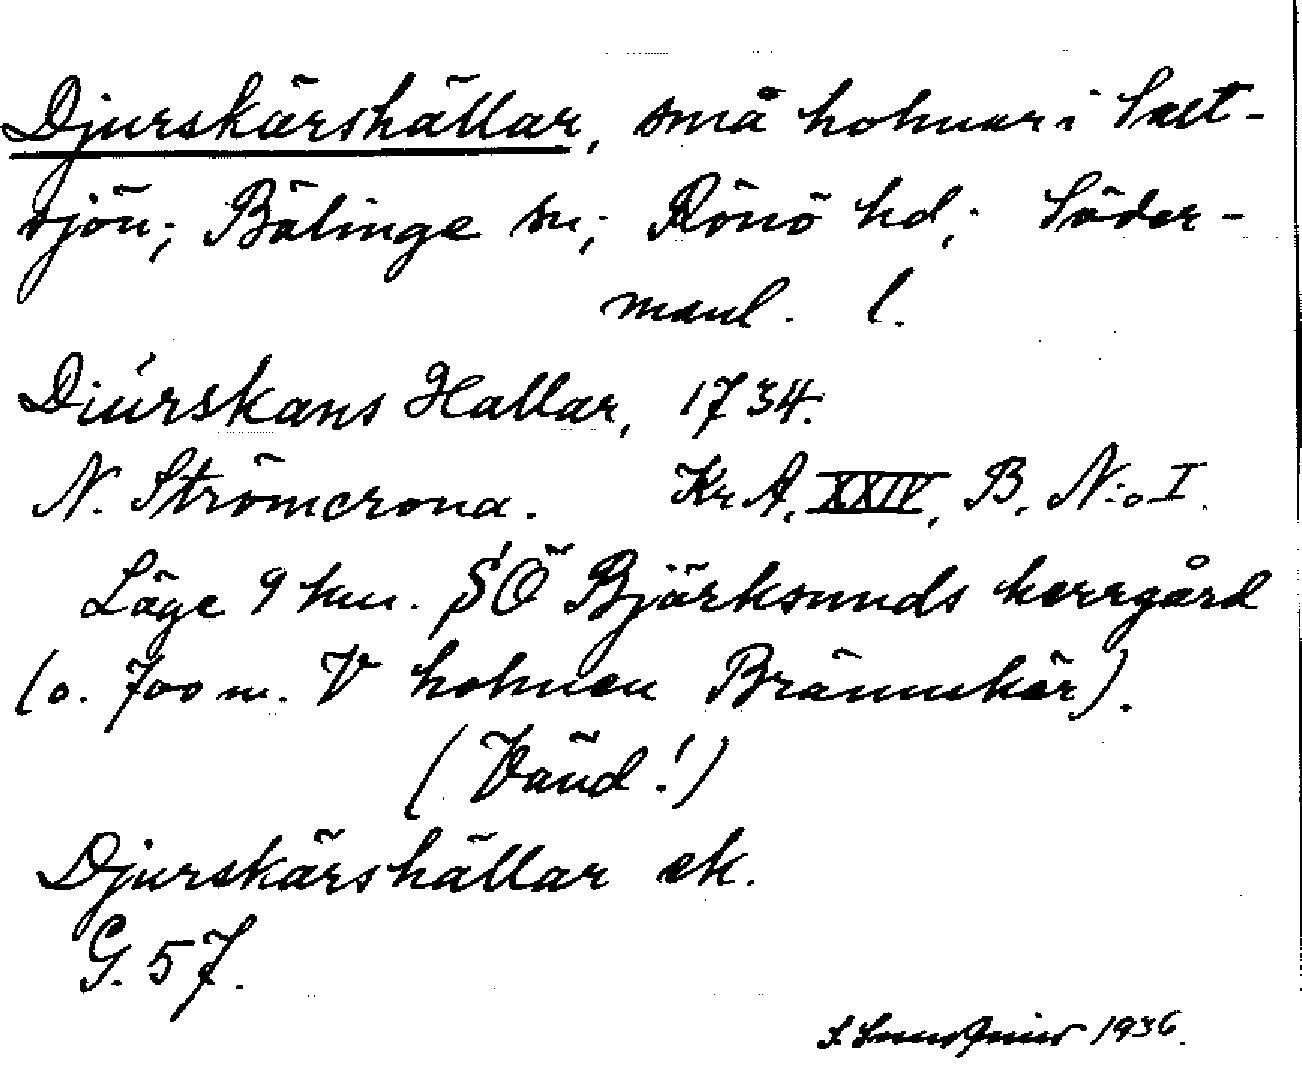 Djurskärshällar, små holmar i Salt-
sjön; Bälinge sn; Rönö hd; Söder-
manl. l.
Diúrskans Hallar, 1734.
N. Strömcrona. Kr A, XXIV, B. N:o I.
Läge 9 km. SÖ Björksunds herrgård
(o. 700 m. V holmen Brännskär).
(Vänd!)
Djurskärshällar ek.
G. 57.
1936.